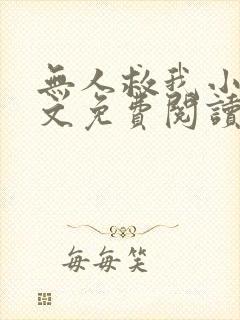 無人救我小
文免費閱讀
每每笑